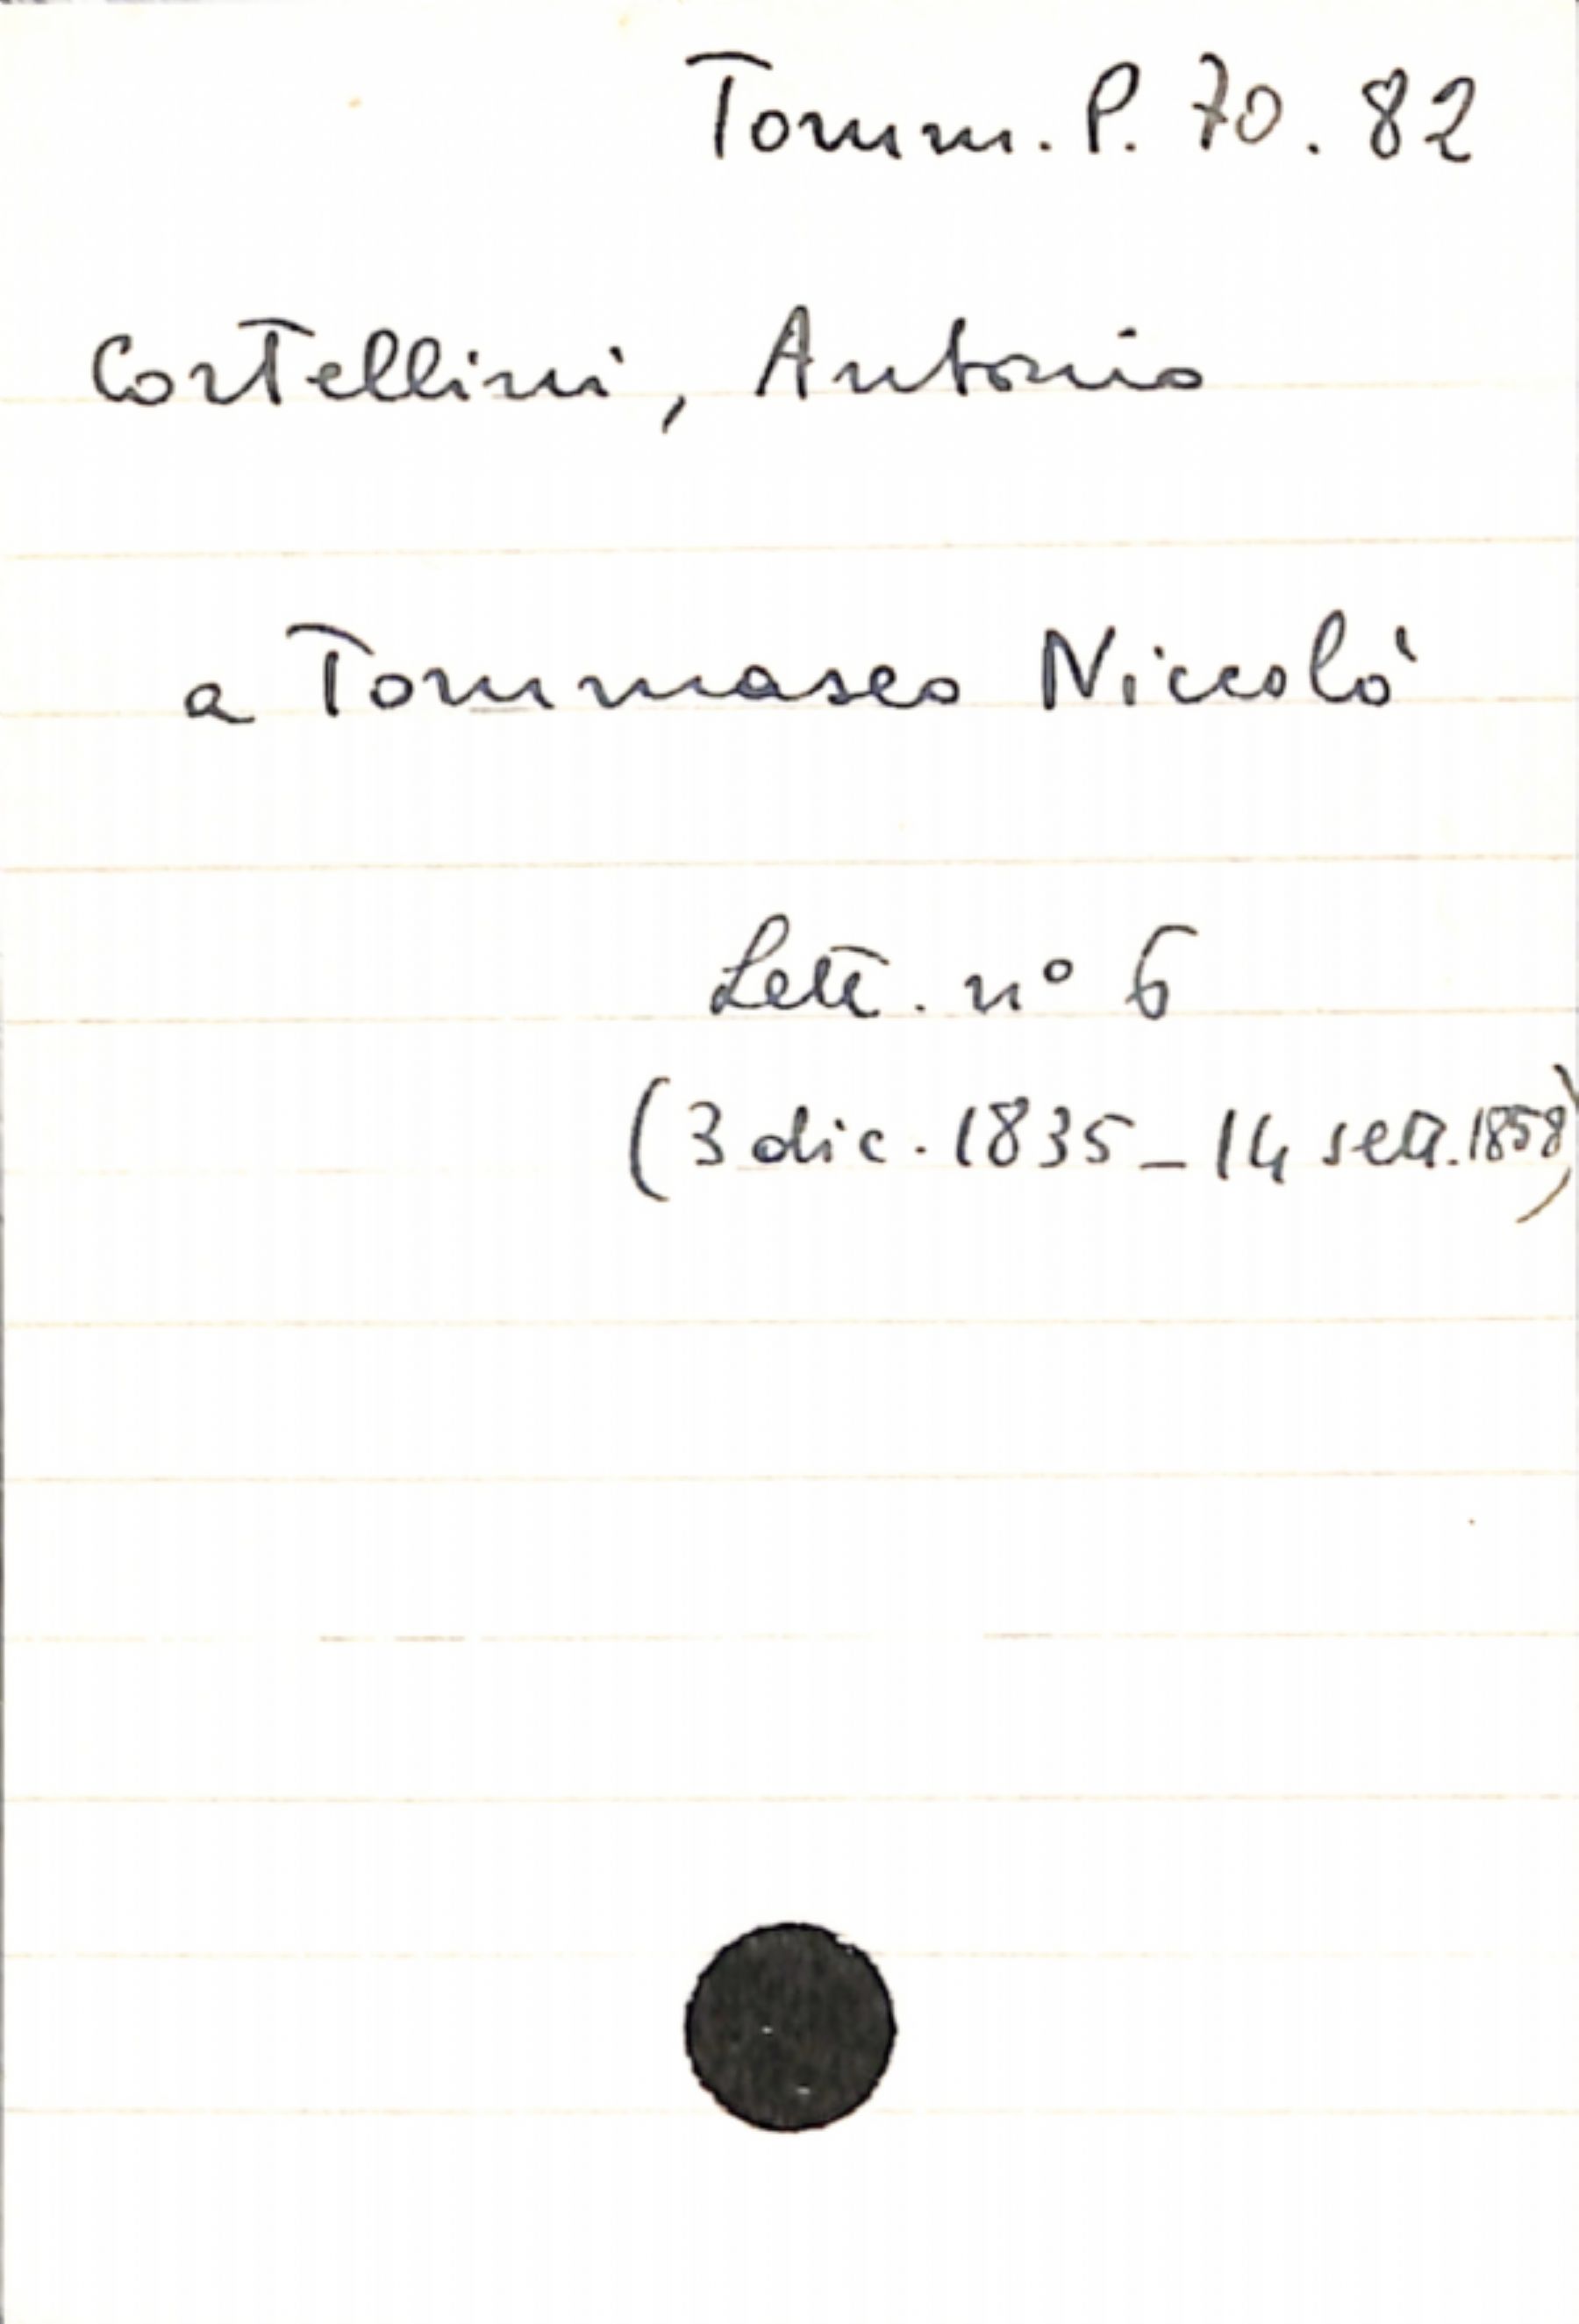 Tomm. P. 70. 82
Cortellini, Antonio
a Tommaseo Niccolò
Lett. n° 6
(3 dic. 1835 - 14 sett. 1858)